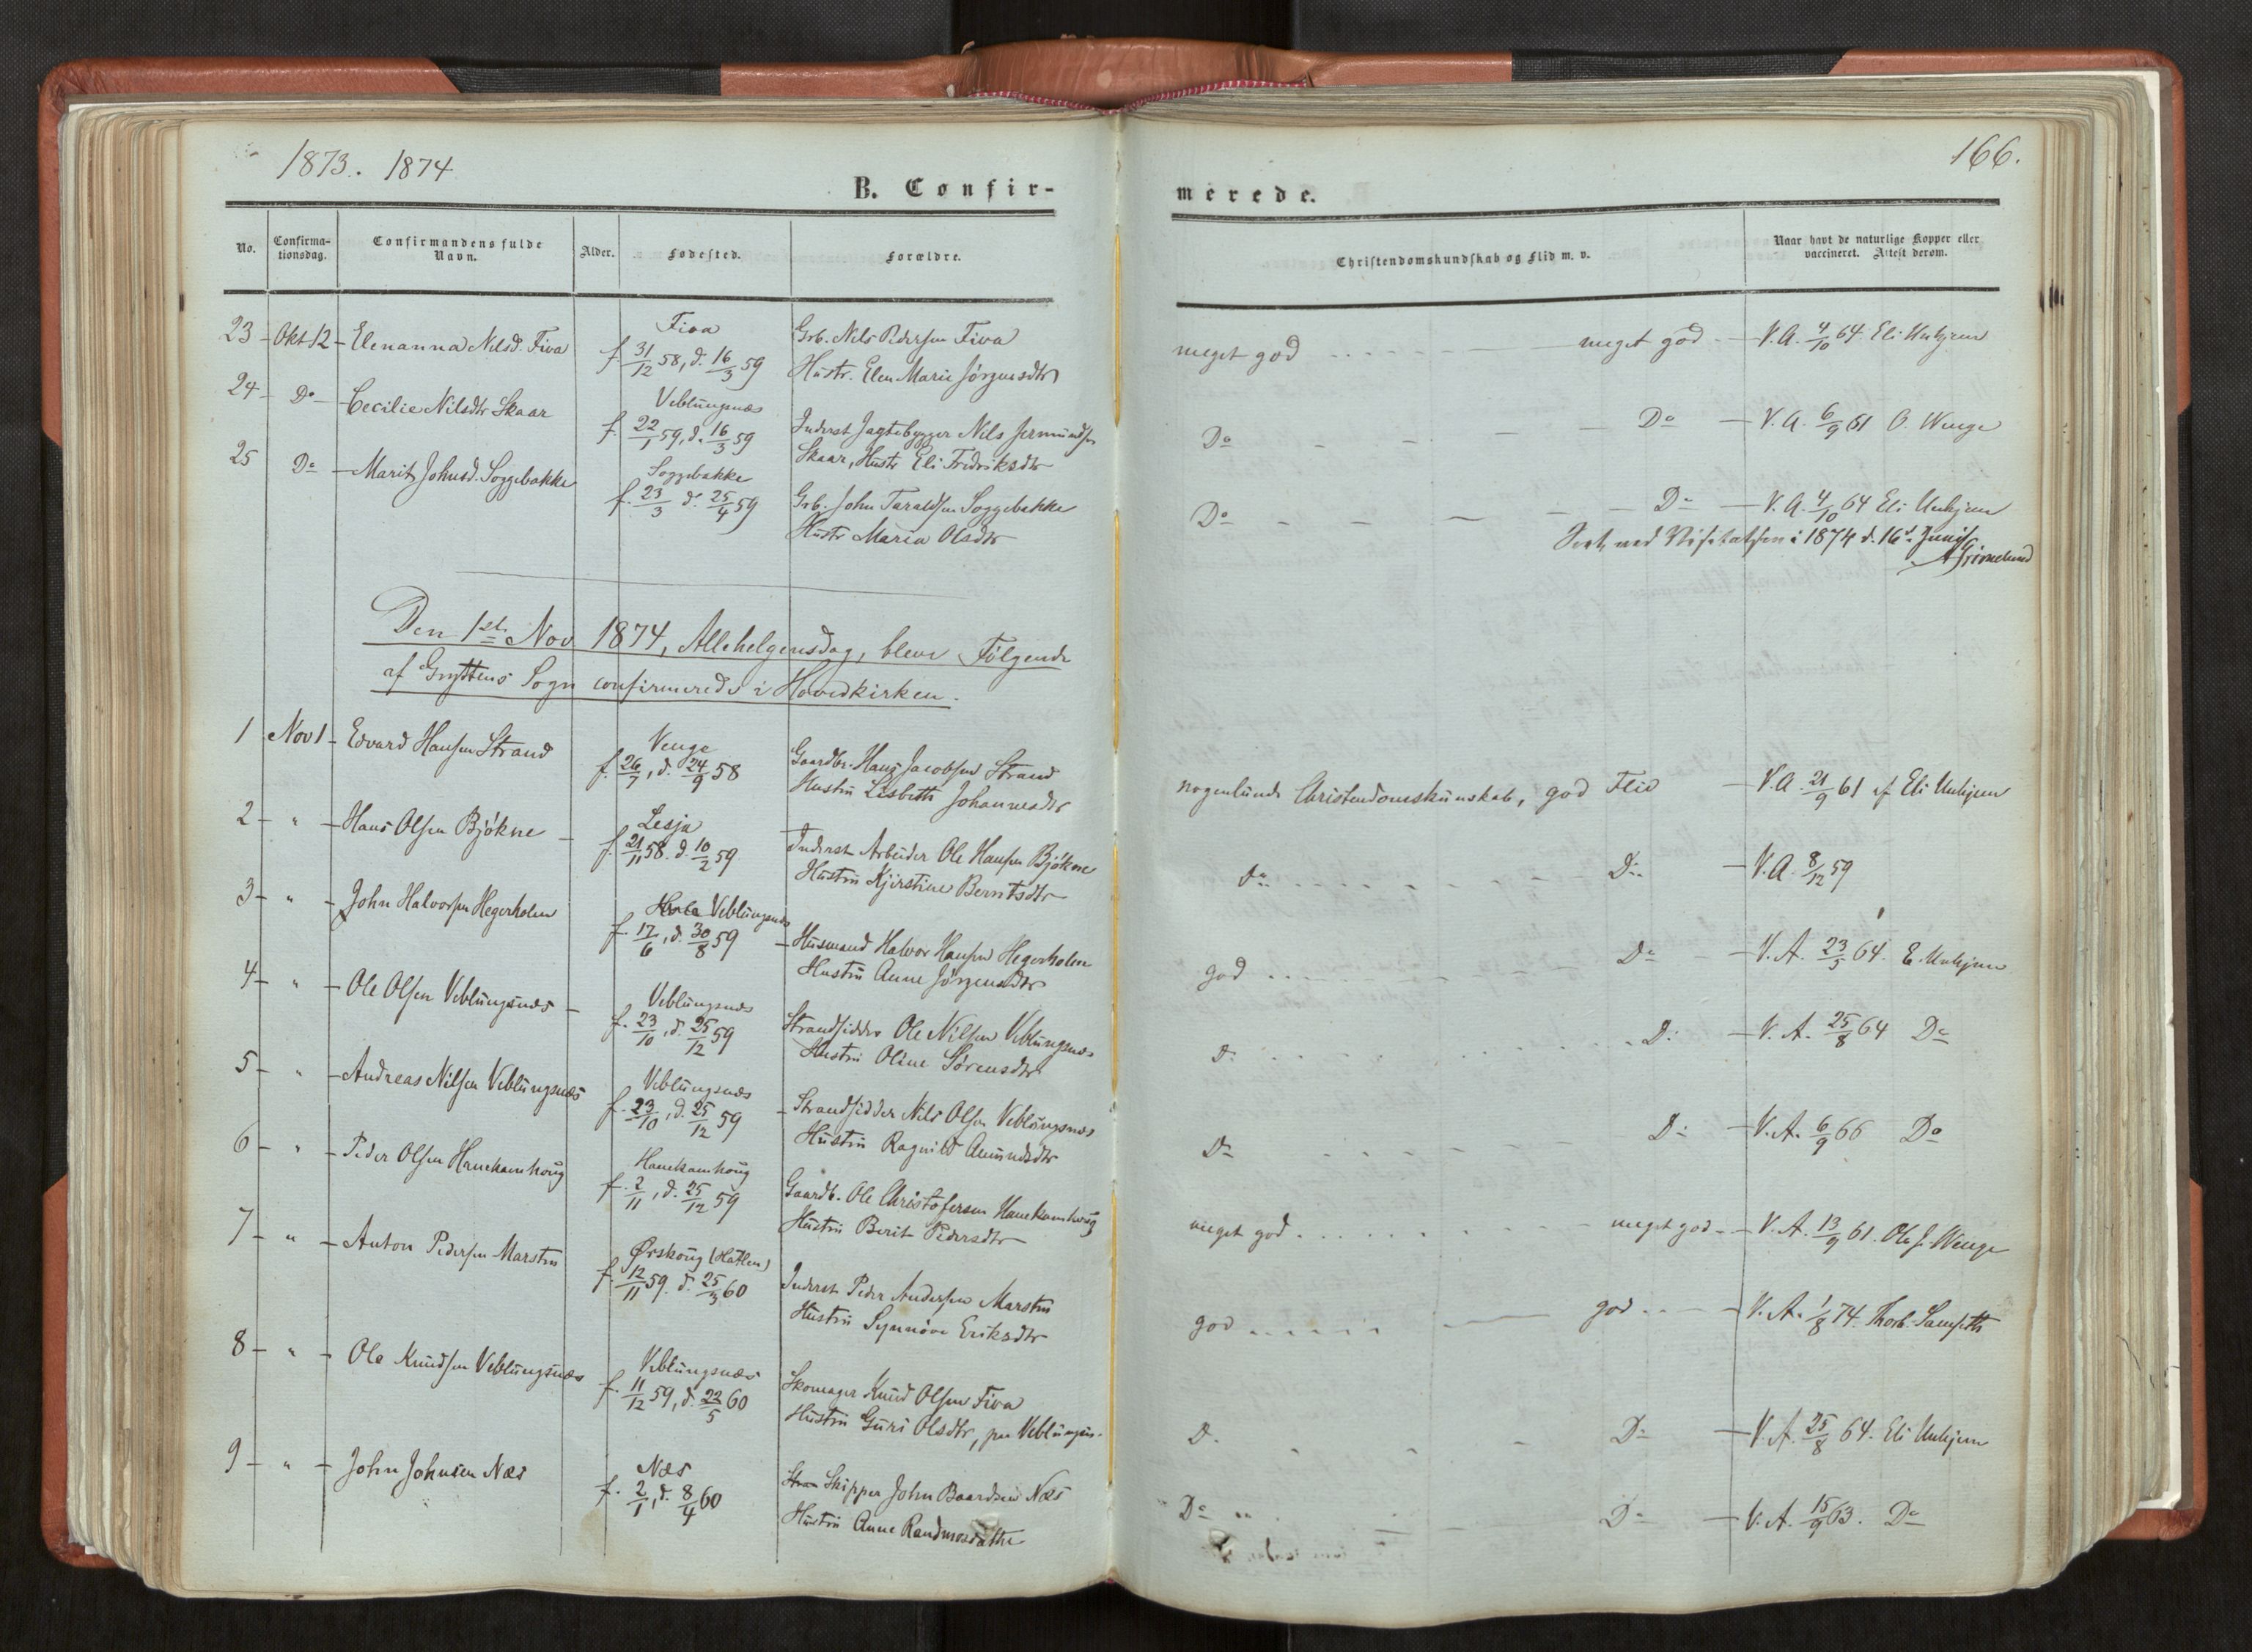 1873. 1874
166.
B. Confir-
merede.
No.
Confirma-
tionsdag.
Confirmandens fulde
Navn.
Alder.
Fødested.
Forældre.
Christendomskundskab og Flid m. v.
Naar havt de naturlige Kopper eller
vaccineret. Attest derom.
23 - Okt 12 - Elenanna Nilsd. Fiva
Fiva
f. 31/12 58, d. 16/3 59
Grb. Nils Pedersen Fiva
Hustr. Elen Marie Jörgensdtr
meget god - meget god - V. A. 4/10 64 Eli Unhjem
24 - Do - Cecilie Nilsdtr Skaar
Veblungsnæs
f. 22/1 59, d. 16/3 59
Inderst Jagtebygger Nils
Skaar, Hustr Eli Fredriksdtr
Do - Do - V. A. 6/9 61 O. Wenge
25 Do - Marit Johnsd. Soggebakke
Soggebakke
f. 23/3 d. 25/4 59
Grb. John Taraldsen Soggebakke
Hustr Maria Olsdtr
Do - Do - V. A. 4/10 64 Eli Unhjem
Seet ved Visitatsen i 1874 d. 16d Juni
Grimelund
Den 1ste Nov 1874, Allehelgensdag, bleve Følgende
af Gryttens Sogn confirmerede i Hovedkirken.
1 Nov 1 - Edvard Hansen Strand
Venge
f. 26/7, d. 24/9 58
Gaardbr. Hans Jacobsen Strand
Hustru Lisbeth Johannesdtr
nogenlunde Christendomskunskab, god Flid - V. A. 21/9 61 af Eli Unhjem
2 - " - Hans Olsen Bjökne -
Lesja
f. 21/11 58. d. 10/2 59
Inderst Arbeider Ole Hansen Bjökne
Hustru Kjerstine Berntsdtr
Do - Do - V. A. 8/12 59
3 - " - John Halvorsen Hegerholm
Veblungsnæs
f. 17/6, d. 30/8 59
- Husmand Halvor Hansen Hegerholm
Hustru Anne Jörgensdtr
god - Do - V. A. 23/5 64. E. Unhjem
4 - " - Ole Olsen Veblungsnæs -
Veblungsnæs
f. 23/10, d. 25/12 59
Strandsidder Ole Nilsen Veblungsnæs
Hustru Oline Sörensdtr
D. - D: - V. A. 25/8 64 Do
5 - " - Andreas Nilsen Veblungsnæs
Veblungsnæs
f. 23/10, d. 25/12 59
- Strandsidder Nils Olsen Veblungsnæs
Hustru Ragnild Amundsdtr
Do - D: - V. A. 6/9 66 Do
6 - " - Peder Olsen Hanekamhoug
Hanekamhoug
f. 2/11, d. 25/12 59
Gaardb. Ole Christofersen Hanekamhoug
Hustru Berit Pedersdtr
meget god - meget god - V. A. 13/9 61. Ole J. Wenge
7 - " - Anton Pedersen Marstein
Ørskoug (Hatlen)
f. 12/11 59. d. 25/3 60
Inderst Peder Andersen Marstein
Hustru Synnöve Eriksdtr
god - god - V. A. 1/8 74. Thorb.
8 - " - Ole Knudsen Veblungsnæs
Veblungsnæs
f. 11/12 59, d. 22/5 60
Skomager Knud Olsen Fiva
Hustru Guri Olsdtr, paa Veblungsn.
D. - Do - V. A. 25/8 64. Eli Unhjem
9 - " - John Johnsen Næs
Næs
f. 2/1, d. 8/4 60
Skipper John Baardsen Næs
Hustru Anne
Do - Do - V. A. 15/9 63. Do